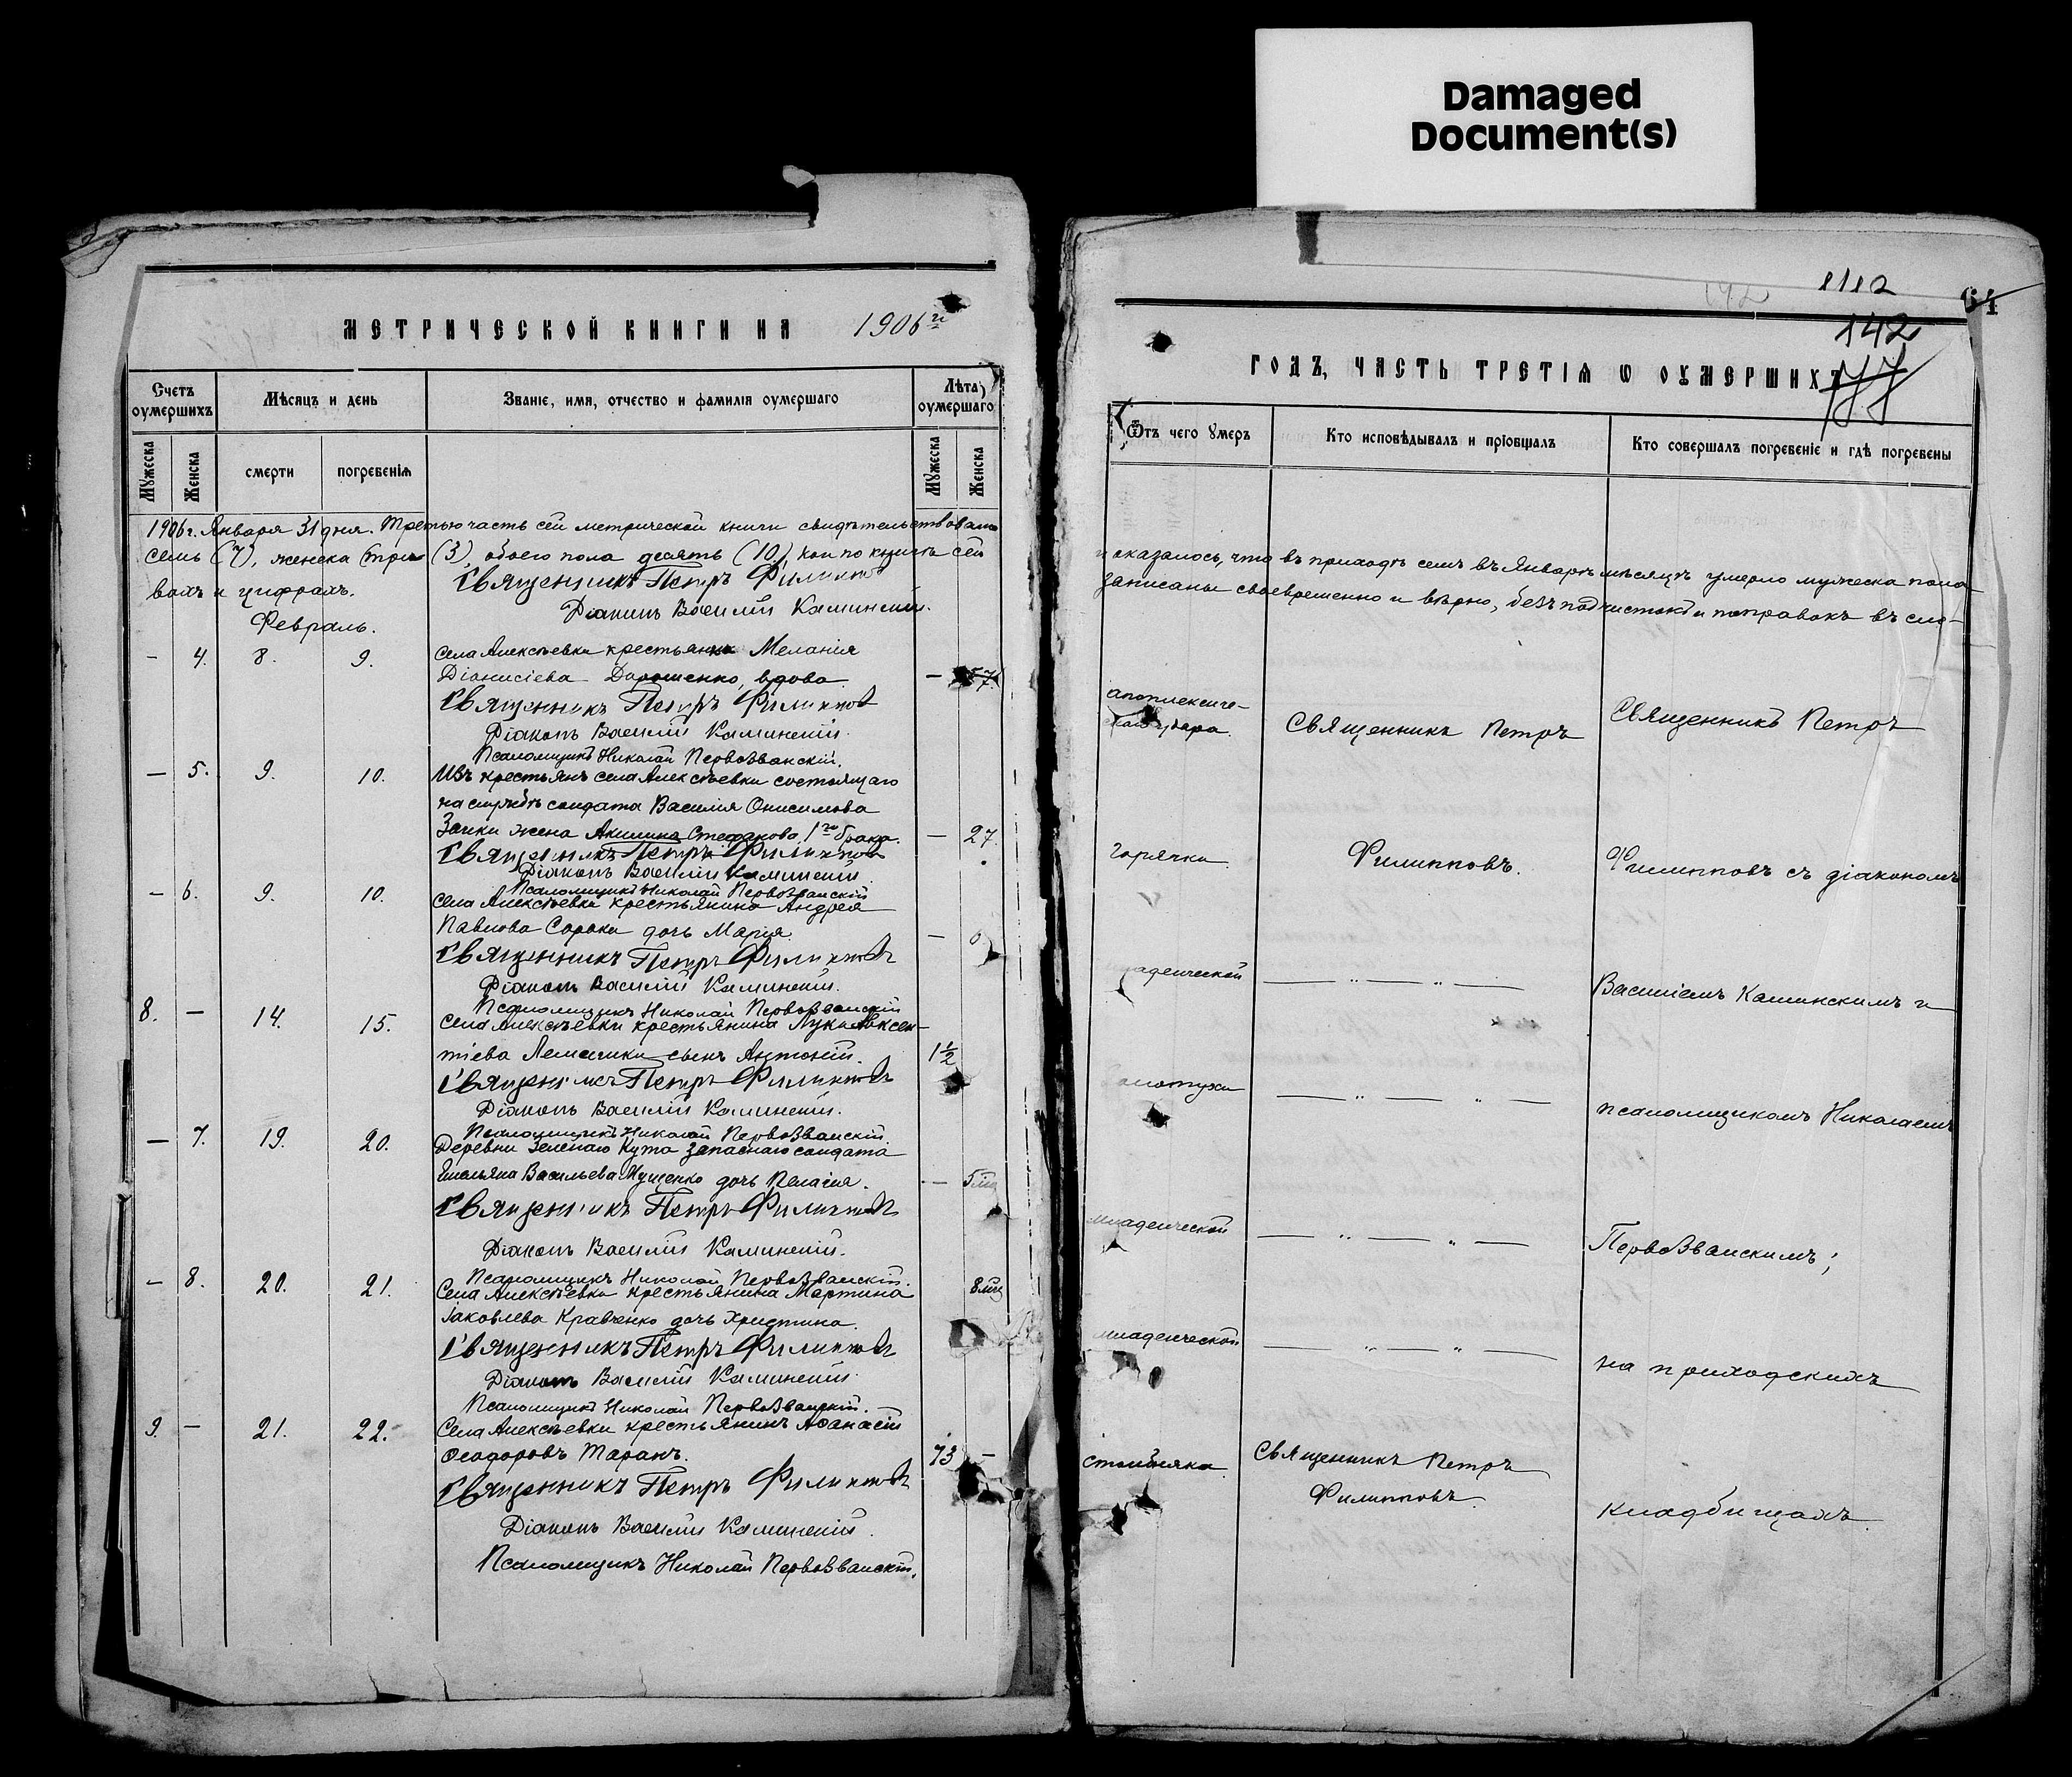 Damaged
Document(s)
МЕТРИЧЕСКОЙ КНИГИ НА 1906 го
Счетъ оумершихъ
Мѣсяцъ и день
Званіе, имя, отчество и фамилія оумершаго
Лѣта оумершаго
Мужеска
Женска
смерти
погребенія
Мужеска
Женска
1906 г. Января 31 дня. Третью часть сей метрической книги свидѣтельствовали
семь (7), женска три (3), обоего пола десять (10), кои по книгѣ сей
вахъ и цифрахъ.
Священникъ Петръ Филипповъ
Діаконъ Василій Каминскій.
Февраль.
- 4. 8. 9. Села Алексѣевки крестьянка Меланія
Діонисіева Дорошенко, вдова. — 57.
Священникъ Петръ Филипповъ
Діаконъ Василій Каминскій.
Псаломщикъ Николай Первозванскій.
— 5. 9. 10. Изъ крестьянъ села Алексѣевки состоящаго
на службѣ солдата Василія Онисимова
Заики жена Акилина Стефанова, 1го брака. — 27.
Священникъ Петръ Филипповъ
Діаконъ Василій Каминскій.
Псаломщикъ Николай Первозванскій
— 6. 9. 10. Села Алексѣевки крестьянина Андрея
Павлова Сороки дочь Марія. —
Священникъ Петръ Филипповъ
Діаконъ Василій Каминскій.
Псаломщикъ Николай Первозванскій
8. — 14. 15. Села Алексѣевки крестьянина Луки Авксен-
тіева сынъ Антоній. 1½
Священникъ Петръ Филипповъ
Діаконъ Василій Каминскій.
Псаломщикъ Николай Первозванскій.
— 7. 19. 20. Деревни Зеленаго Кута запаснаго солдата
Емельяна Васильева Мущенко дочь Пелагія. — 5 мц
Священникъ Петръ Филипповъ
Діаконъ Василій Каминскій.
Псаломщикъ Николай Первозванскій.
— 8. 20. 21. Села Алексѣевки крестьянина Мартина 8 мц
Іаковлева Кравченко дочь Христина.
Священникъ Петръ Филипповъ
Діаконъ Василій Каминскій.
Псаломщикъ Николай Первозванскій.
9. — 21. 22. Села Алексѣевки крестьянинъ Аѳанасій
Ѳеодоровъ Таранъ. 73 —
Священникъ Петръ Филипповъ
Діаконъ Василій Каминскій.
Псаломщикъ Николай Первозванскій.
142
1112
64
142
77
ГОДЪ, ЧАСТЬ ТРЕТІЯ Ѡ ОУМЕРШИХЪ
Ѿтъ чего умеръ
Кто исповѣдывалъ и пріобщалъ
Кто совершалъ погребеніе и гдѣ погребены
и оказалось, что въ приходѣ семъ въ Январѣ мѣсяцѣ умерло мужеска пола
записаны своевременно и вѣрно, безъ подчистокъ и поправокъ въ сло-
апоплексиче-
скаго удара.
Священникъ Петръ
Священникъ Петръ
горячки
Филипповъ.
Филипповъ съ діакономъ
Василіемъ Каминскимъ и
псаломщикомъ Николаемъ
младенческой
Первозванскимъ;
младенческой
на приходскихъ
столбняка.
Священникъ Петръ
Филипповъ.
кладбищахъ.